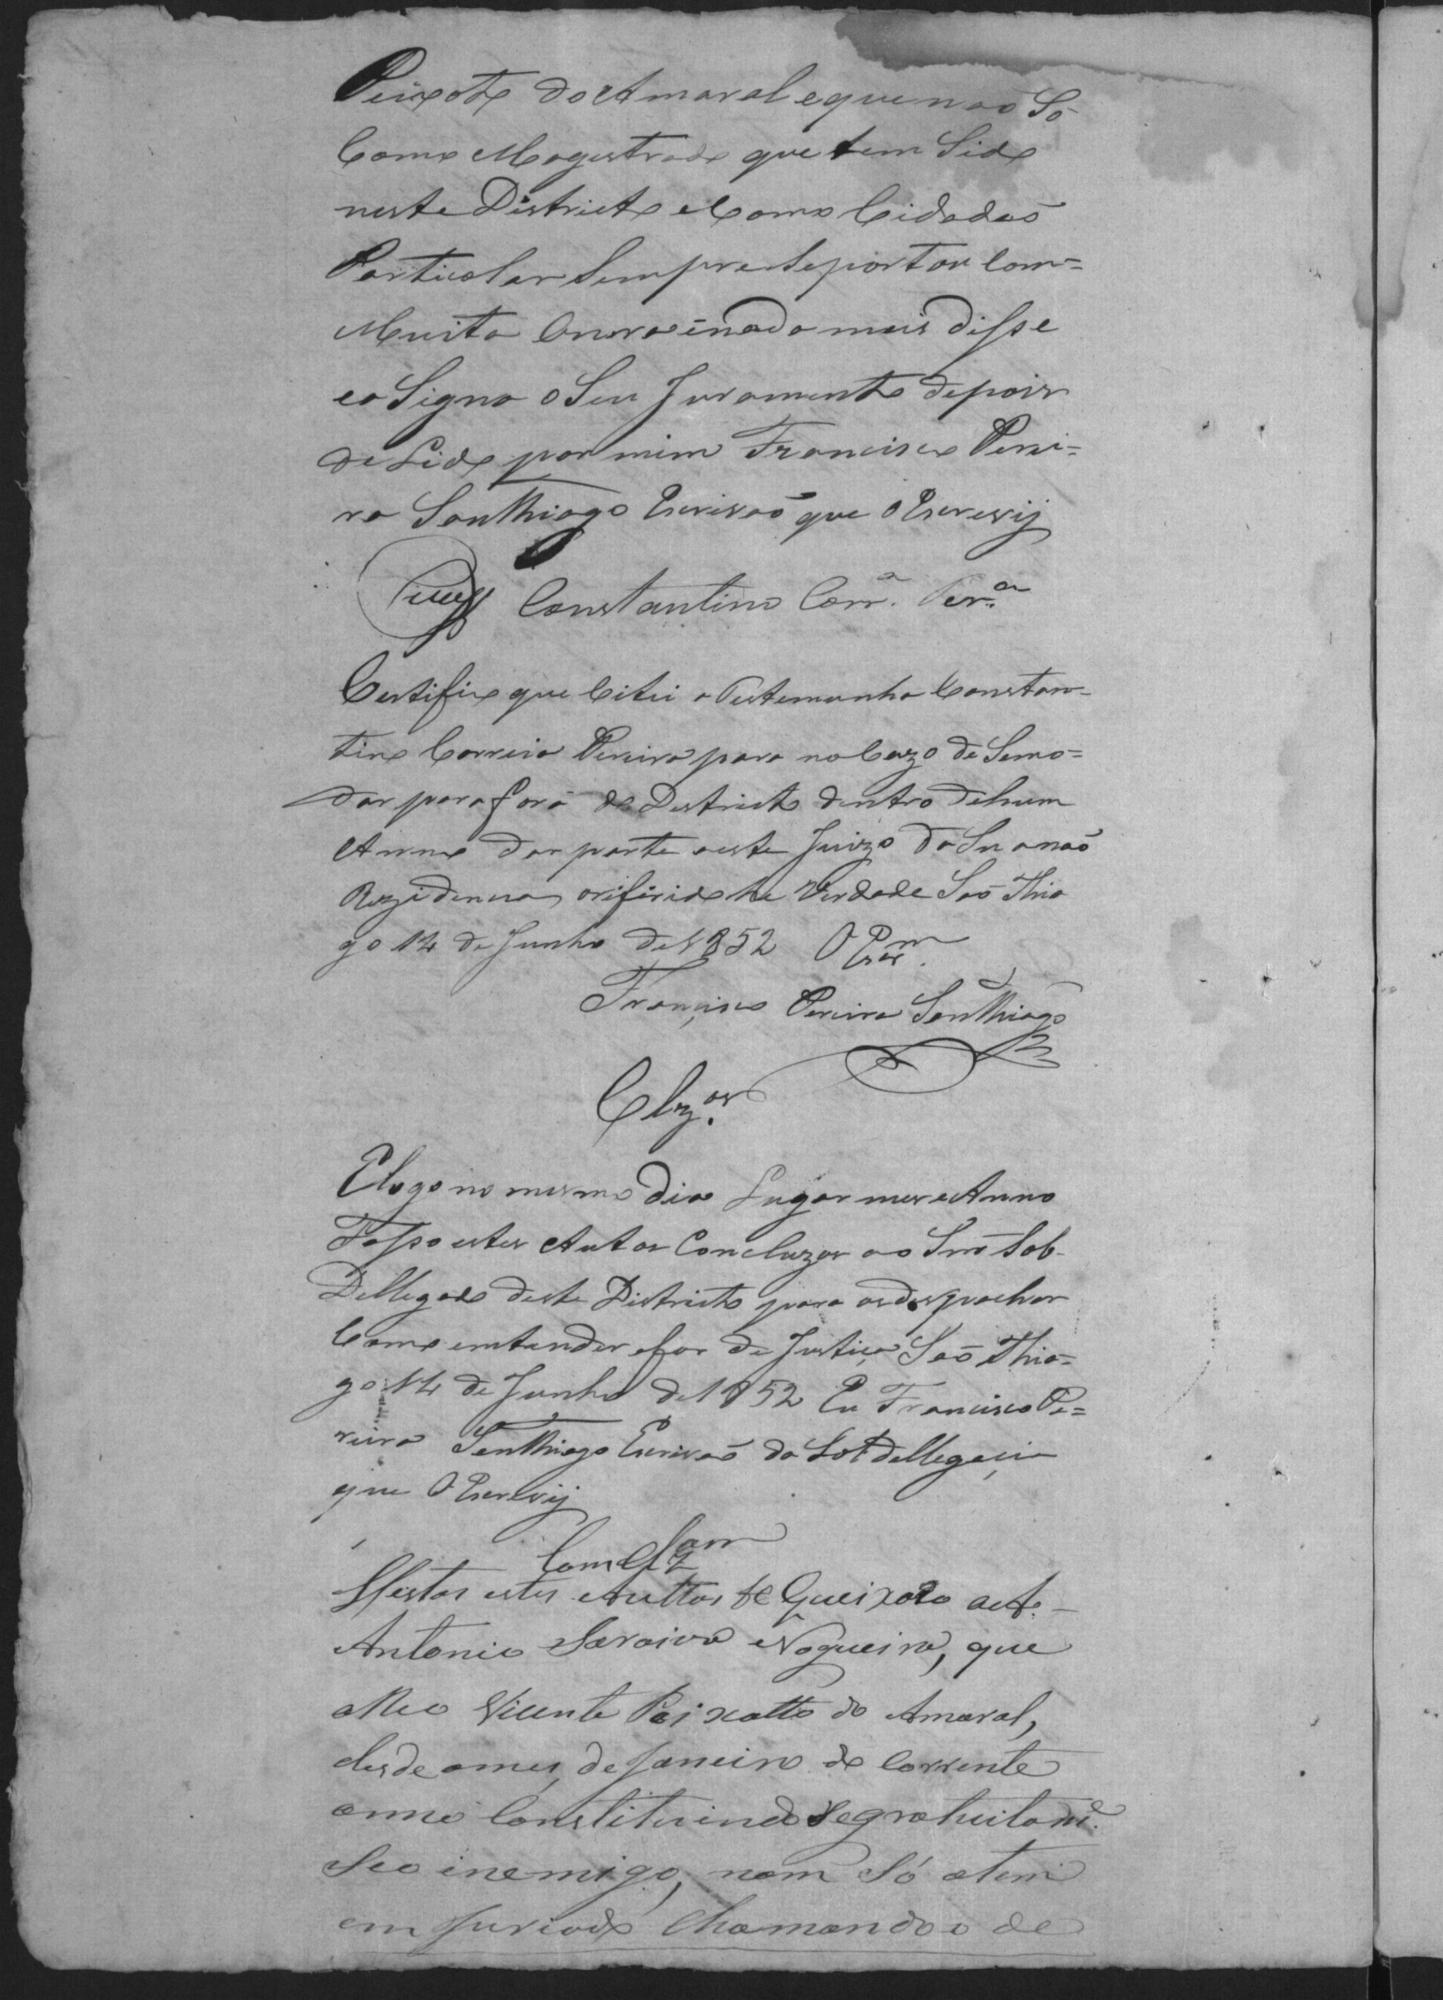 Peixoto do Amaral e que naõ Só
Como Magestrado que tem Sido
neste Districto e Como Cidadaõ
Particolar Sempre Se portou Com=
Muita Onra e nada mais disse
e aSigno o Seu Juramento depois
de Lido por mim Francisco Perei=
ra SanThiago Escrivaõ que o Escrevij
Constantino Corr.ª Per.ª
Certifico que Citei a Testemunha Constan-
tino Correia Pereira para no Cazo de Semo=
dar para fora do Districto dentro de hum
Anno dar parte aeste Juizo da Su a naõ
Rezidencia, oriferido he Verdade Saõ Thia
go 14 de Junho de 1852 O Escr.m
Francisco Pereira SanThiago
Clz.os
E logo no mesmo dia Lugar mes e Anno
Fasso estes Autos Concluzos ao Snr Sob-
Dellegado deste Districto para os despachar
Como entender e for de Justiça Saõ Thia=
go 14 de Junho de 1852 Eu Francisco Pe=
reira SanThiago Escrivaõ da Sobdellegacia
que o Escrevij
Vestos estes Auttos de Queixa do A.
Antonio Saraiva Nogueira, que
o Reo Vicente Peixotto do Amaral,
desde o mes de Janeiro do Corrente
anno Constituindo Se gratuitam.e
Seo inemigo, nam Só o tem
emjuriado Chamando o de